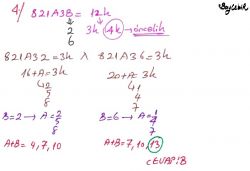 4/ 821A3B = 12k
2 3k 4k → öncelik
6
821A32 = 3k ∧ 821A36 = 3k
16+A = 3k 20+A = 3k
2 1
5 4
8 7
B=2 → A = 2 B=6 → A = 1
5 4
8 7
A+B = 4, 7, 10 A+B = 7, 10, 13
CEVAP: B